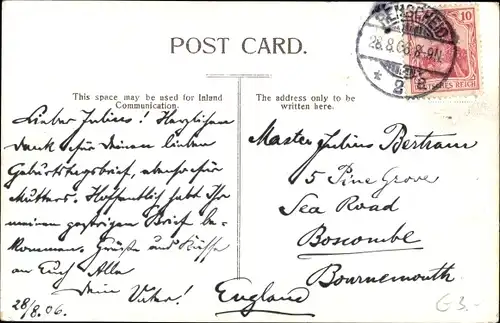 POST CARD.
REMSCHEID
28.8.06.8-9N.
* 2 a
10
DEUTSCHES REICH
This space may be used for Inland
Communication.
The address only to be
written here.
Lieber Julius! Herzlichen
Dank für Deinen lieben
Geburtstagsbrief, ebenso für
Mutters. Hoffentlich habt Ihr
meinen gestrigen Brief be-
kommen. Grüsse und Küsse
an Euch Alle
Dein Vater!
28/8.06.
Master Julius Bertram
5 Pine Grove
Sea Road
Boscombe
Bournemouth
England
G3.-